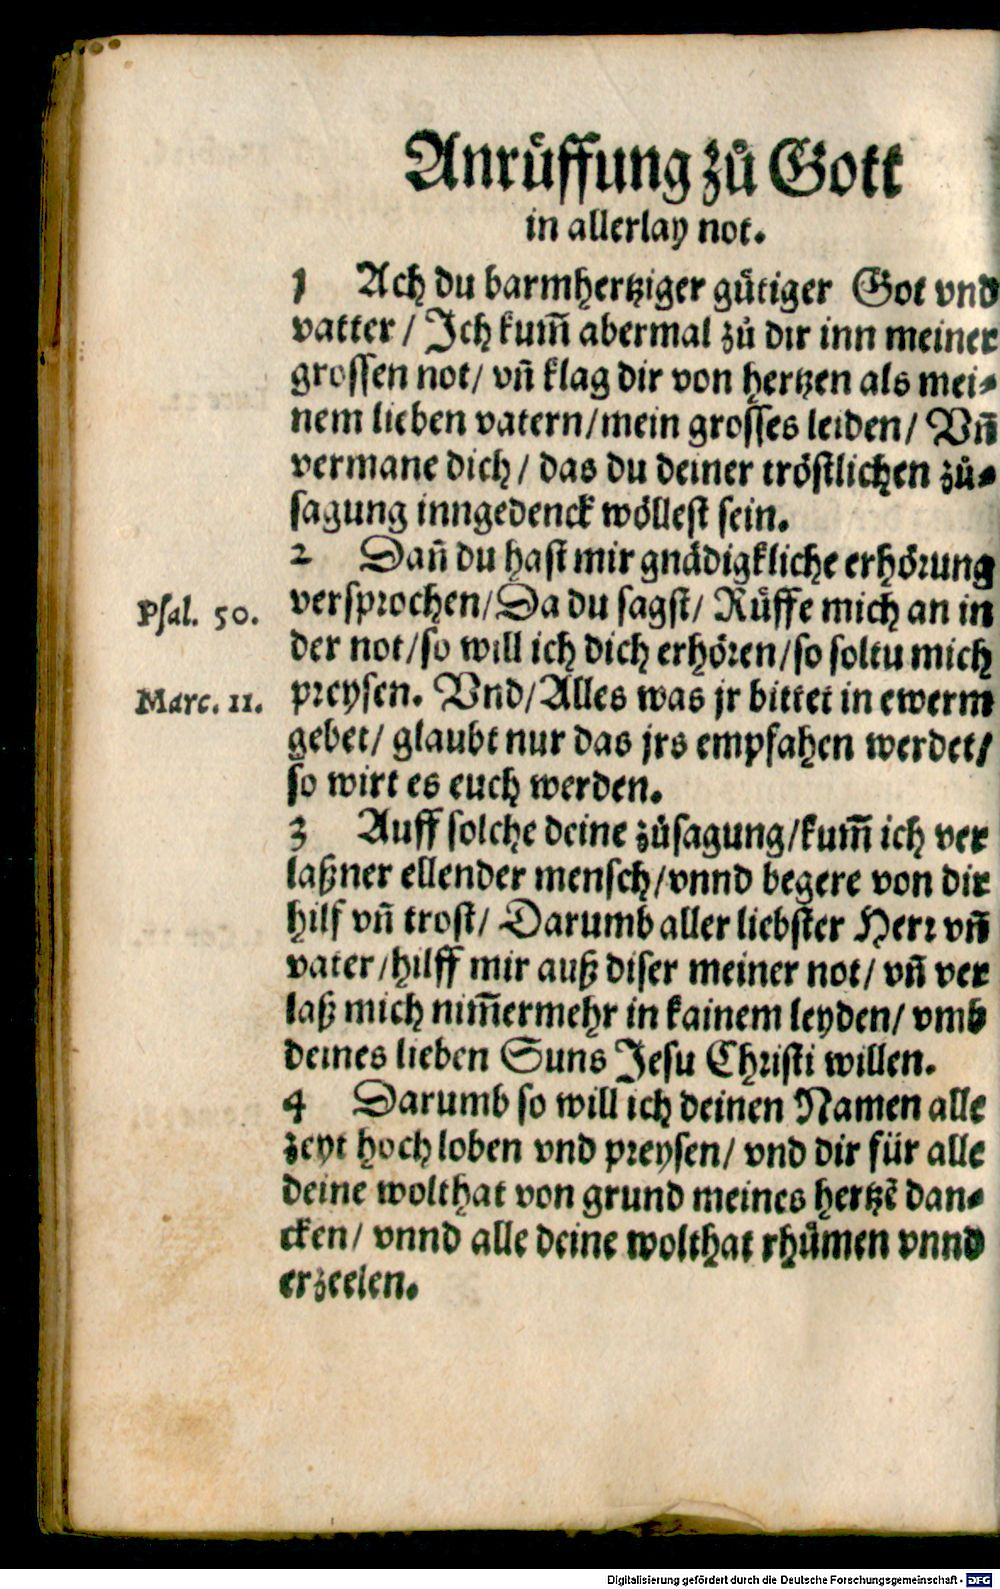 Anrůffung zů Gott
in allerlay not.
1 Ach du barmhertziger gütiger Got vnd
vatter / Ich kum̃ abermal zů dir inn meiner
grossen not / vñ klag dir von hertzen als mei⸗
nem lieben vatern / mein grosses leiden / Vñ
vermane dich / das du deiner tröstlichen zů⸗
sagung inngedenck wöllest sein.
2 Dañ du hast mir gnädigkliche erhörung
Psal. 50. versprochen / Da du sagst / Rüffe mich an in
der not / so will ich dich erhören / so soltu mich
Marc. 11. preysen. Vnd / Alles was jr bittet in ewerm
gebet / glaubt nur das jrs empfahen werdet /
so wirt es euch werden.
3 Auff solche deine zůsagung / kum̃ ich ver
laßner ellender mensch / vnnd begere von dir
hilf vñ trost / Darumb aller liebster Herr vñ
vater / hilff mir auß diser meiner not / vñ ver
laß mich nim̃ermehr in kainem leyden / vmb
deines lieben Suns Jesu Christi willen.
4 Darumb so will ich deinen Namen alle
zeyt hoch loben vnd preysen / vnd dir für alle
deine wolthat von grund meines hertzē dan⸗
cken / vnnd alle deine wolthat rhůmen vnnd
erzeelen.
Digitalisierung gefördert durch die Deutsche Forschungsgemeinschaft - DFG